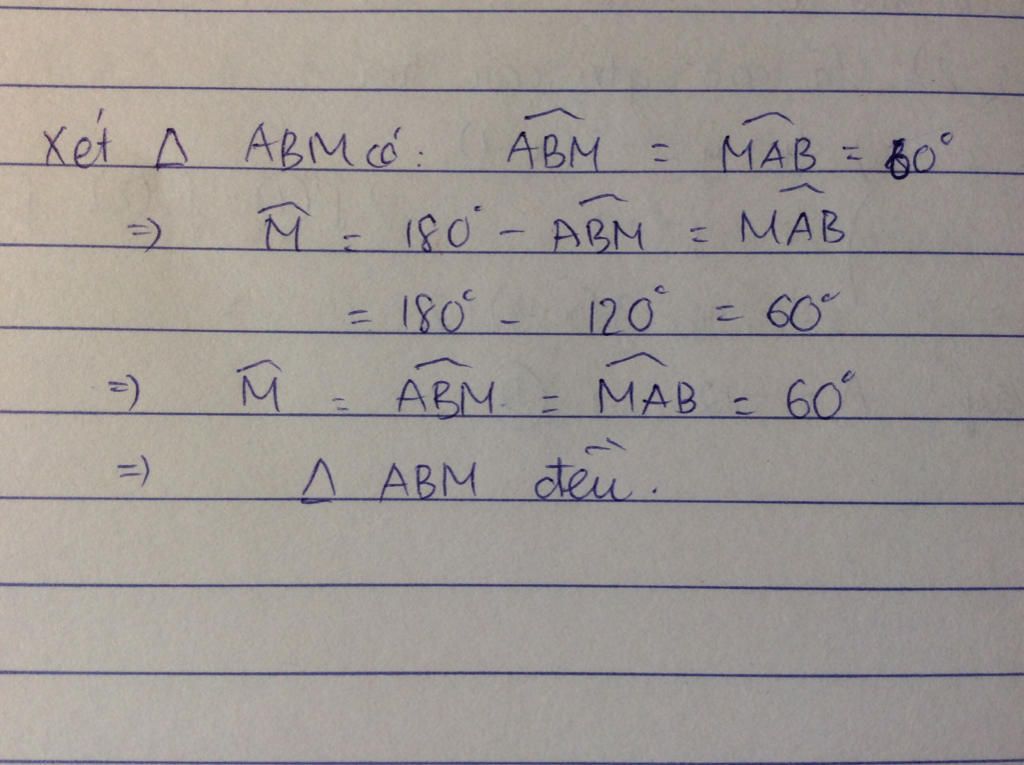 Xét Δ ABM có: \widehat{ABM} = \widehat{MAB} = 60°
=> \widehat{M} = 180° - \widehat{ABM} = \widehat{MAB}
= 180° - 120° = 60°
=> \widehat{M} = \widehat{ABM} = \widehat{MAB} = 60°
=> Δ ABM đều.